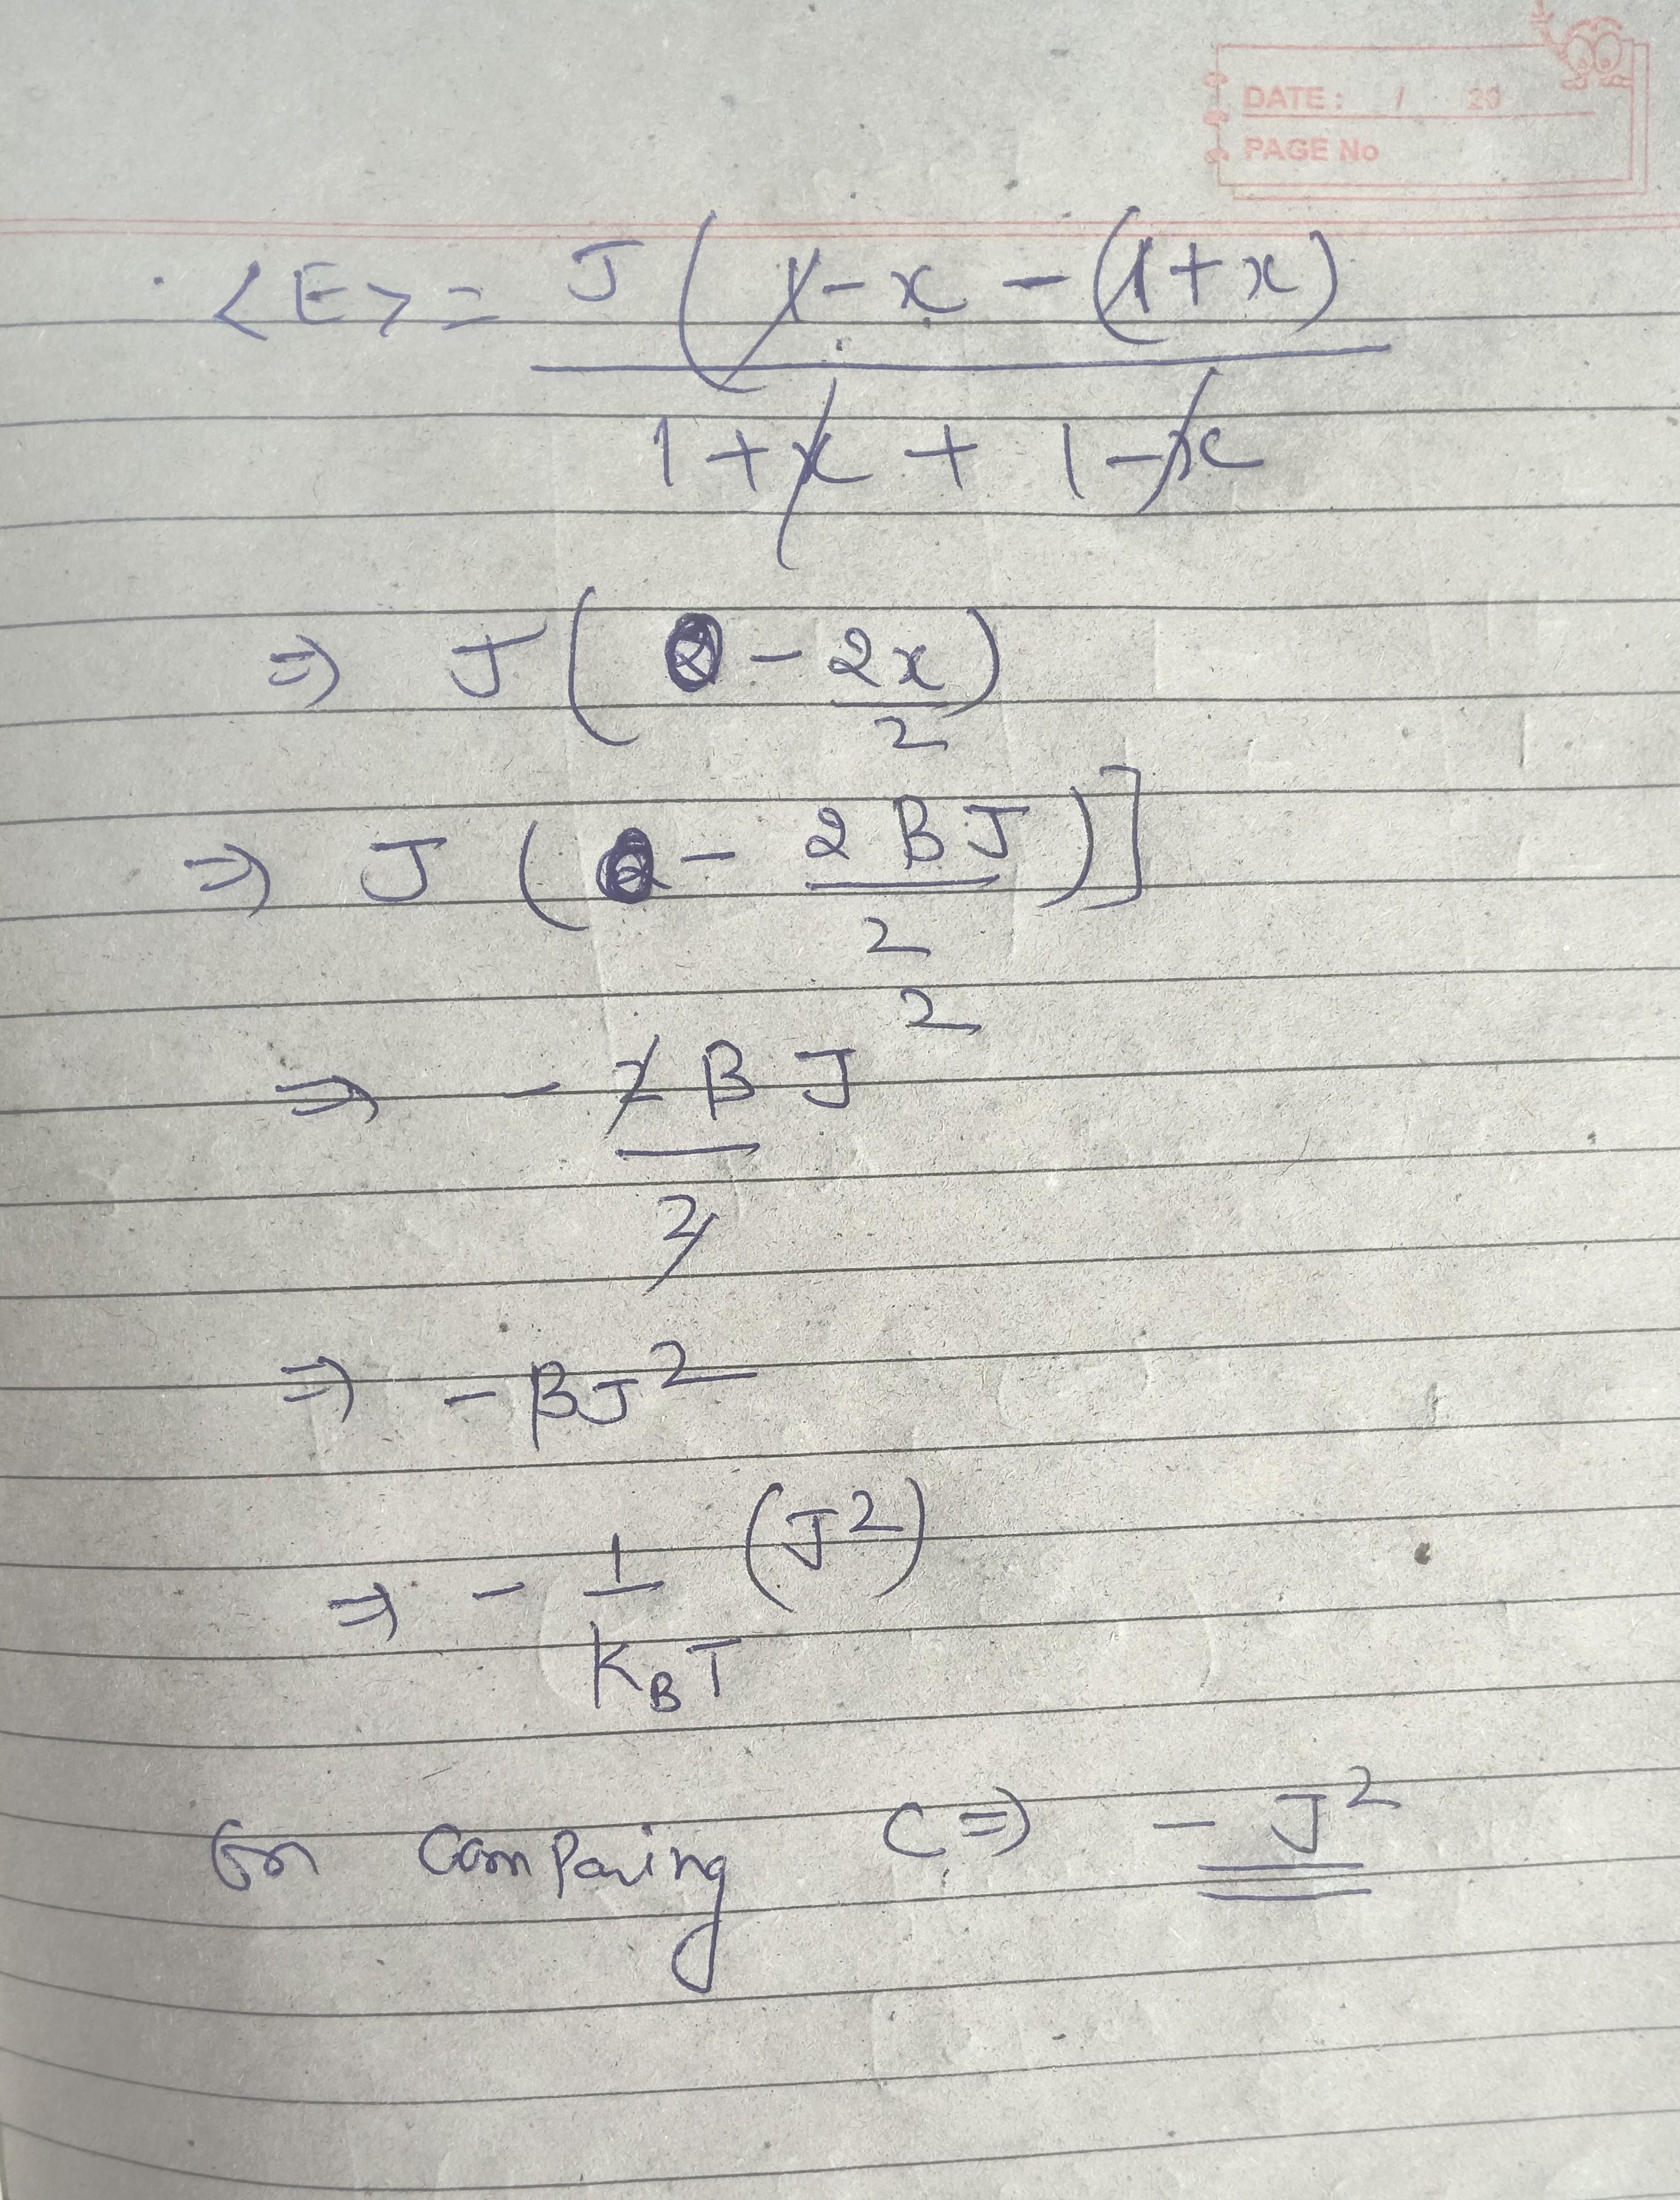 DATE : / 20
PAGE No
<E> = J ( 1 - x - (1 + x)
1 + x + 1 - x
⇒ J ( 0 - 2x )
2
⇒ J ( 0 - 2 β J ) ]
2
⇒ - 2 β J ²
2
⇒ - β J ²
⇒ - 1 ( J ² )
K_B T
on comparing C ⇒ - J ²